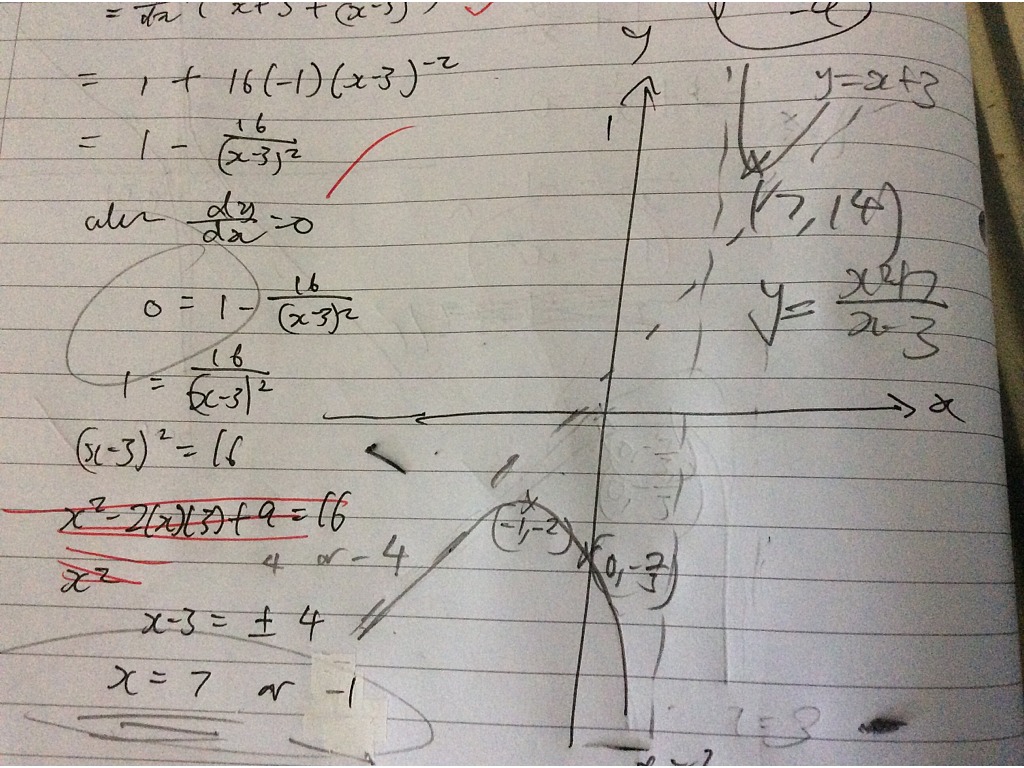 = d/dx (x+3 + (x-3)
= 1 + 16(-1)(x-3)^-2
= 1 - 16/(x-3)^2
when dy/dx = 0
0 = 1 - 16/(x-3)^2
1 = 16/(x-3)^2
(x-3)^2 = 16
x^2 - 2(x)(3) + 9 = 16
x^2
4 or -4
x-3 = ± 4
x = 7 or -1
-4
y
y = x+3
(7, 14)
y = x^2+7/x-3
x
(0, -7/3)
(0, -7/3)
(-1, -2)
(0, -7/3)
= 3